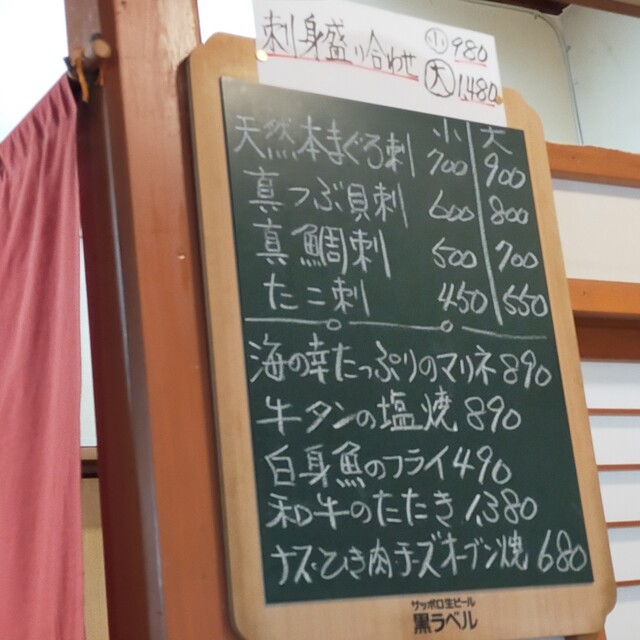 刺身盛り合わせ 小 980
大 1,480
小 大
天然本まぐろ刺 700 900
真つぶ貝刺 600 800
真鯛刺 500 700
たこ刺 450 550
海の幸たっぷりのマリネ 890
牛タンの塩焼 890
白身魚のフライ 490
和牛のたたき 1,380
ナス・ひき肉チーズオーブン焼 680
サッポロ生ビール
黒ラベル